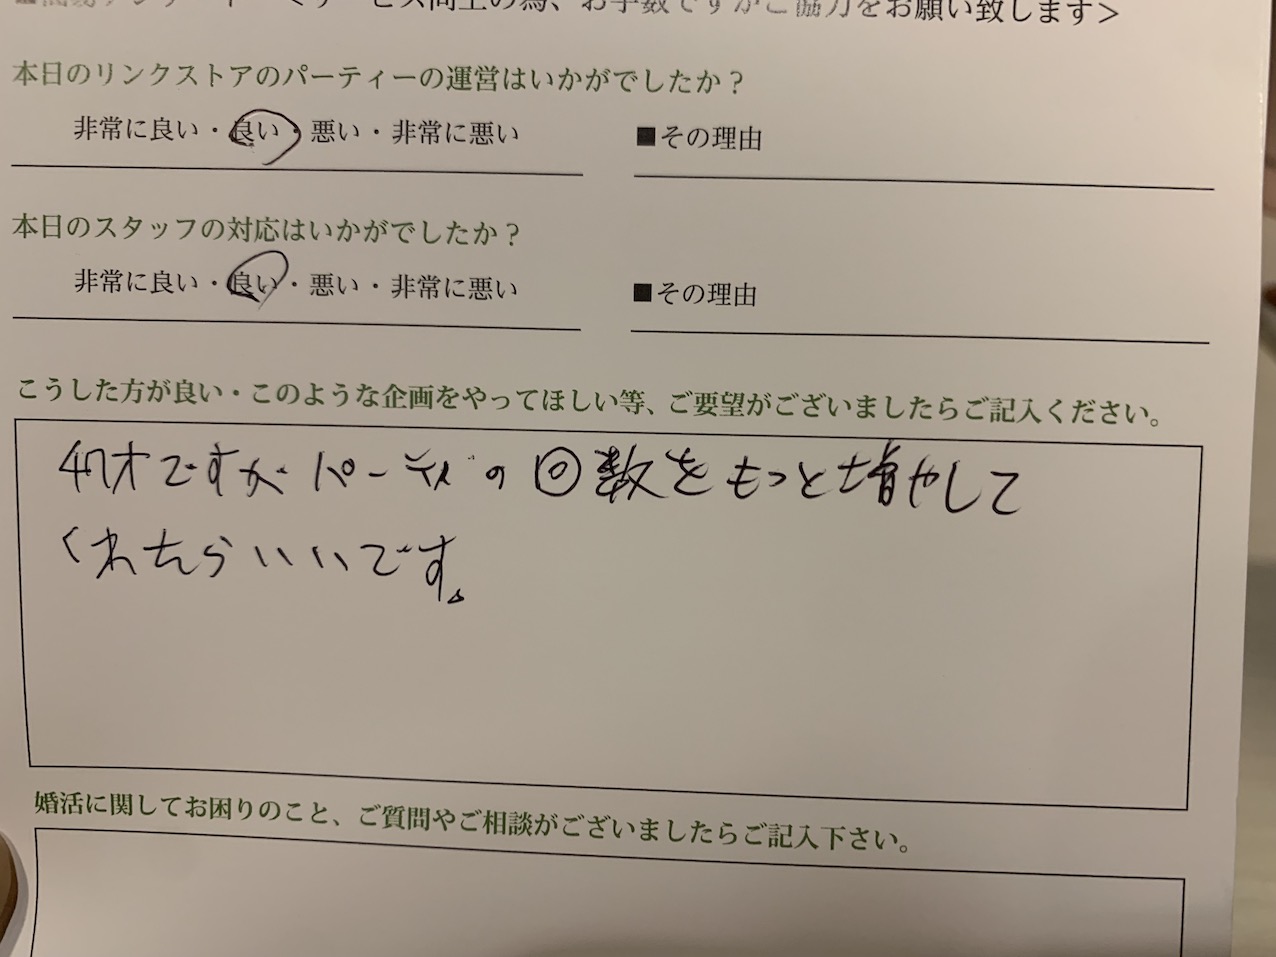 サービス向上の為、お手数ですがご協力をお願い致します＞
本日のリンクストアのパーティーの運営はいかがでしたか？
非常に良い・良い・悪い・非常に悪い ■その理由
本日のスタッフの対応はいかがでしたか？
非常に良い・良い・悪い・非常に悪い ■その理由
こうした方が良い・このような企画をやってほしい等、ご要望がございましたらご記入ください。
47才ですが パーティの回数をもっと増やして
くれたらいいです。
婚活に関してお困りのこと、ご質問やご相談がございましたらご記入下さい。